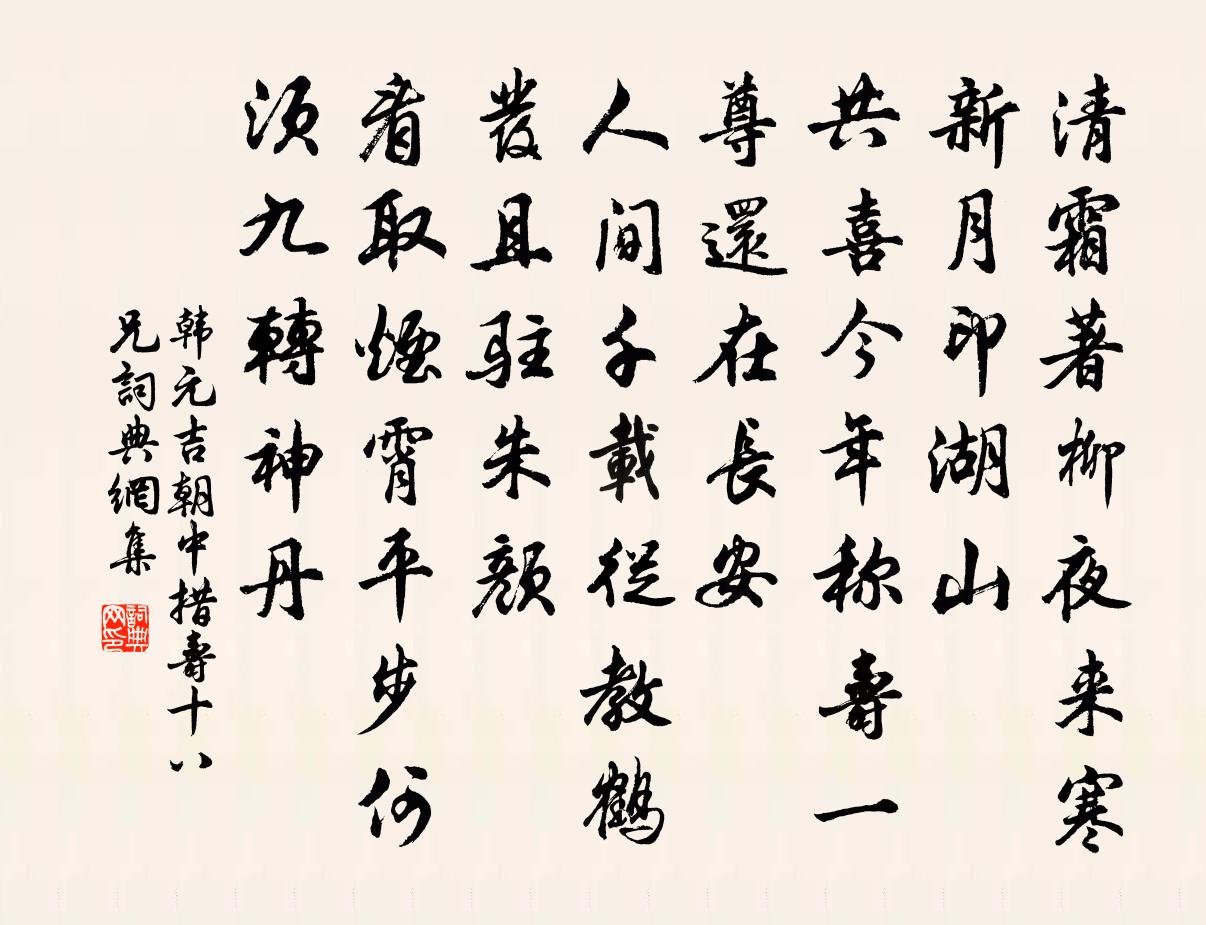 清霜著栁夜来寒
新月印湖山
共喜今年称壽一
尊還在長安
人间千載從教鶴
發且駐朱顔
看取煙霄平步何
須九轉神丹
韩元吉朝中措壽十八
兄詞典網集
詞典
网印